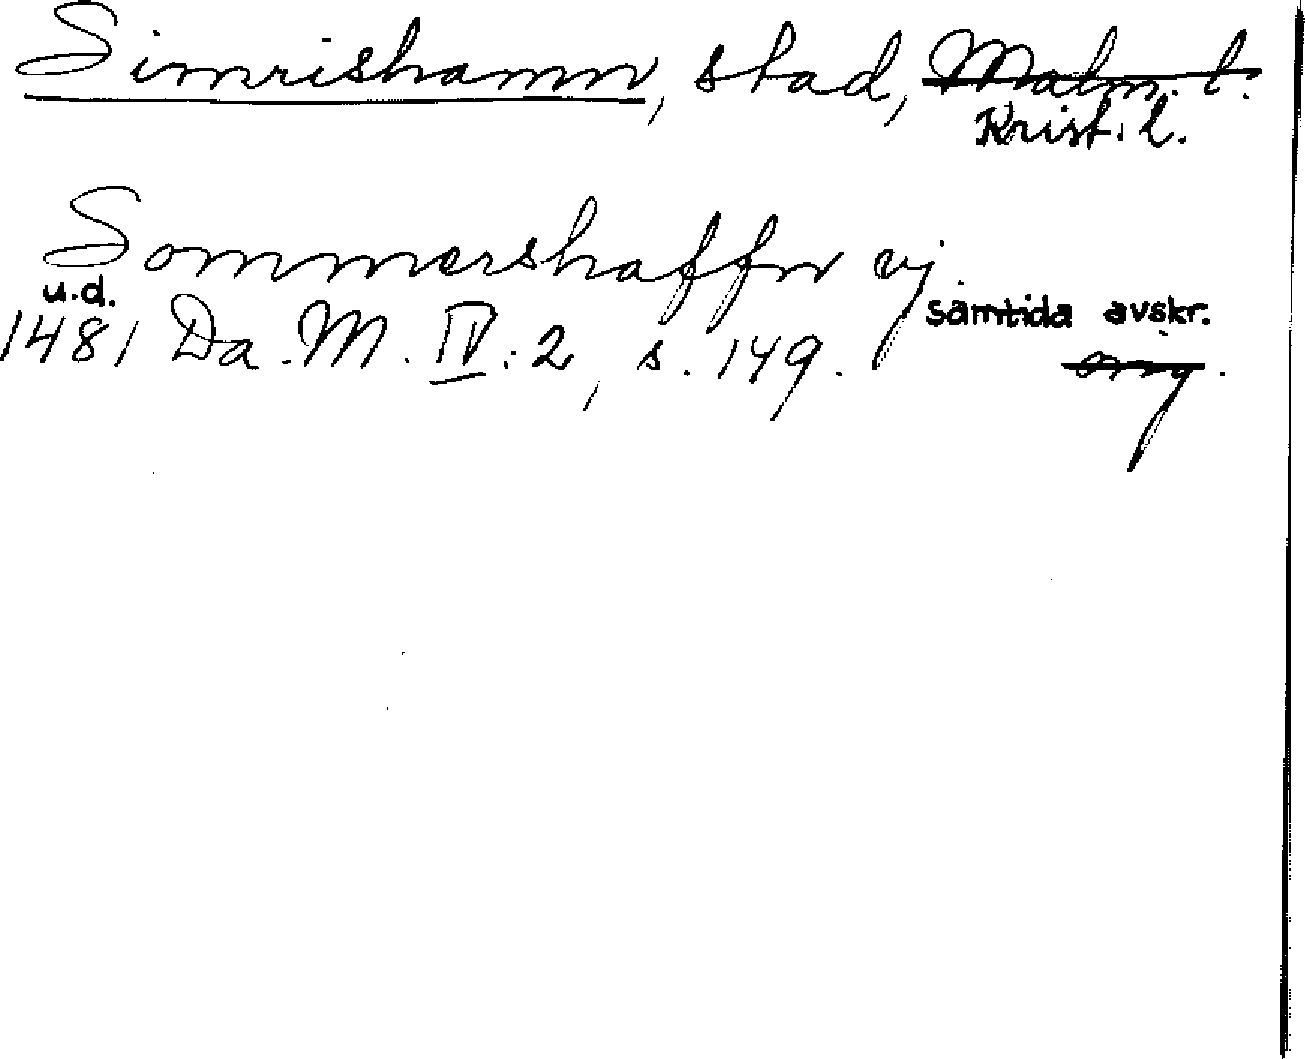 Simrishamn, stad, Malm. l.
Krist. l.
Sommershaffn vj
u.d.
samtida avskr.
1481 Da. M. IV: 2, s. 149.
orig.